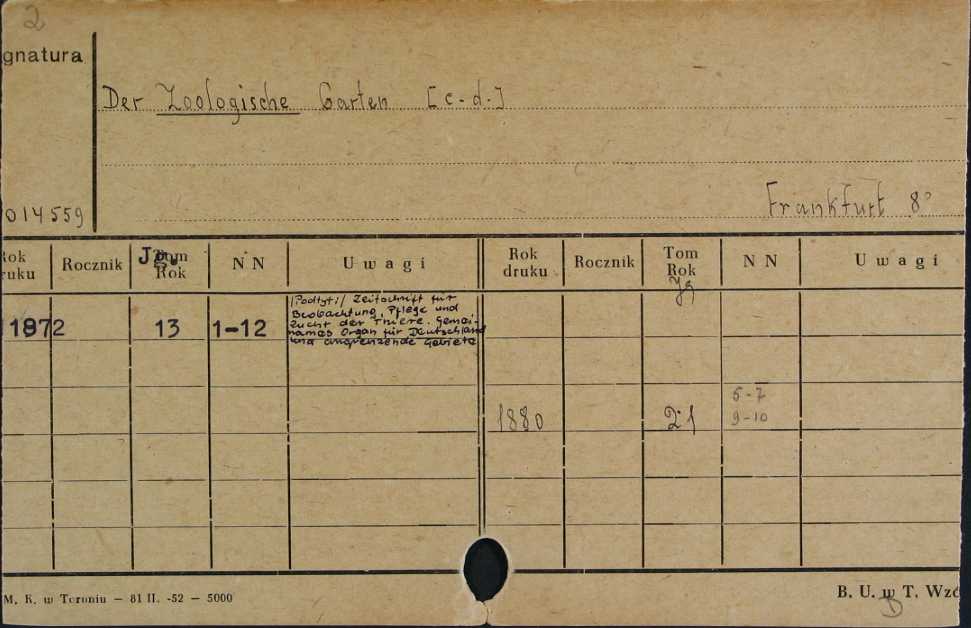 2
gnatura
Der Zoologische Garten [c.d.]
014559
Frankfurt 8°
Rok
ruku
Rocznik
Jg.
Tom
Rok
N N
Uwagi
Rok
druku
Rocznik
Tom
Rok
Jg
N N
Uwagi
1872 13 1-12
/Podtyt:/ Zeitschrift für
Beobachtung, Pflege und
Zucht der Thiere. Gemei-
names Organ für Deutschland
und angrenzende Gebiete
1880 21
5-7
9-10
M. K. w Toruniu — 81 II. -52 — 5000
B. U. w T. Wzó
D